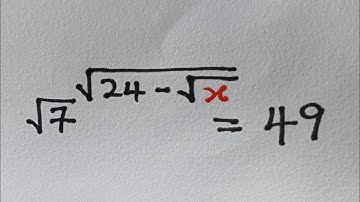 √7^√(24 - √x) = 49